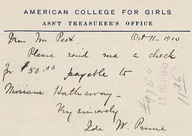 AMERICAN COLLEGE FOR GIRLS
ASS'T TREASURER'S OFFICE
Oct 11, 1910
Dear Mr Peet
Please send me a check
for $50.00 payable to
Miriam Hathaway.
Very sincerely
Ida W. Prime